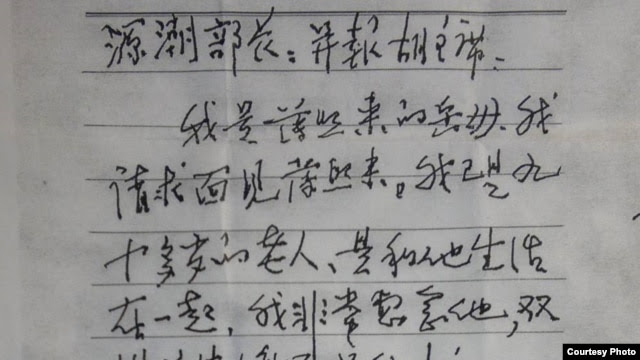 源潮部长：并报胡主席：
我是薄熙来的岳母、我
请求面见薄熙来。我已是九
十多岁的老人、是和他生活
在一起，我非常想念他，双
Courtesy Photo